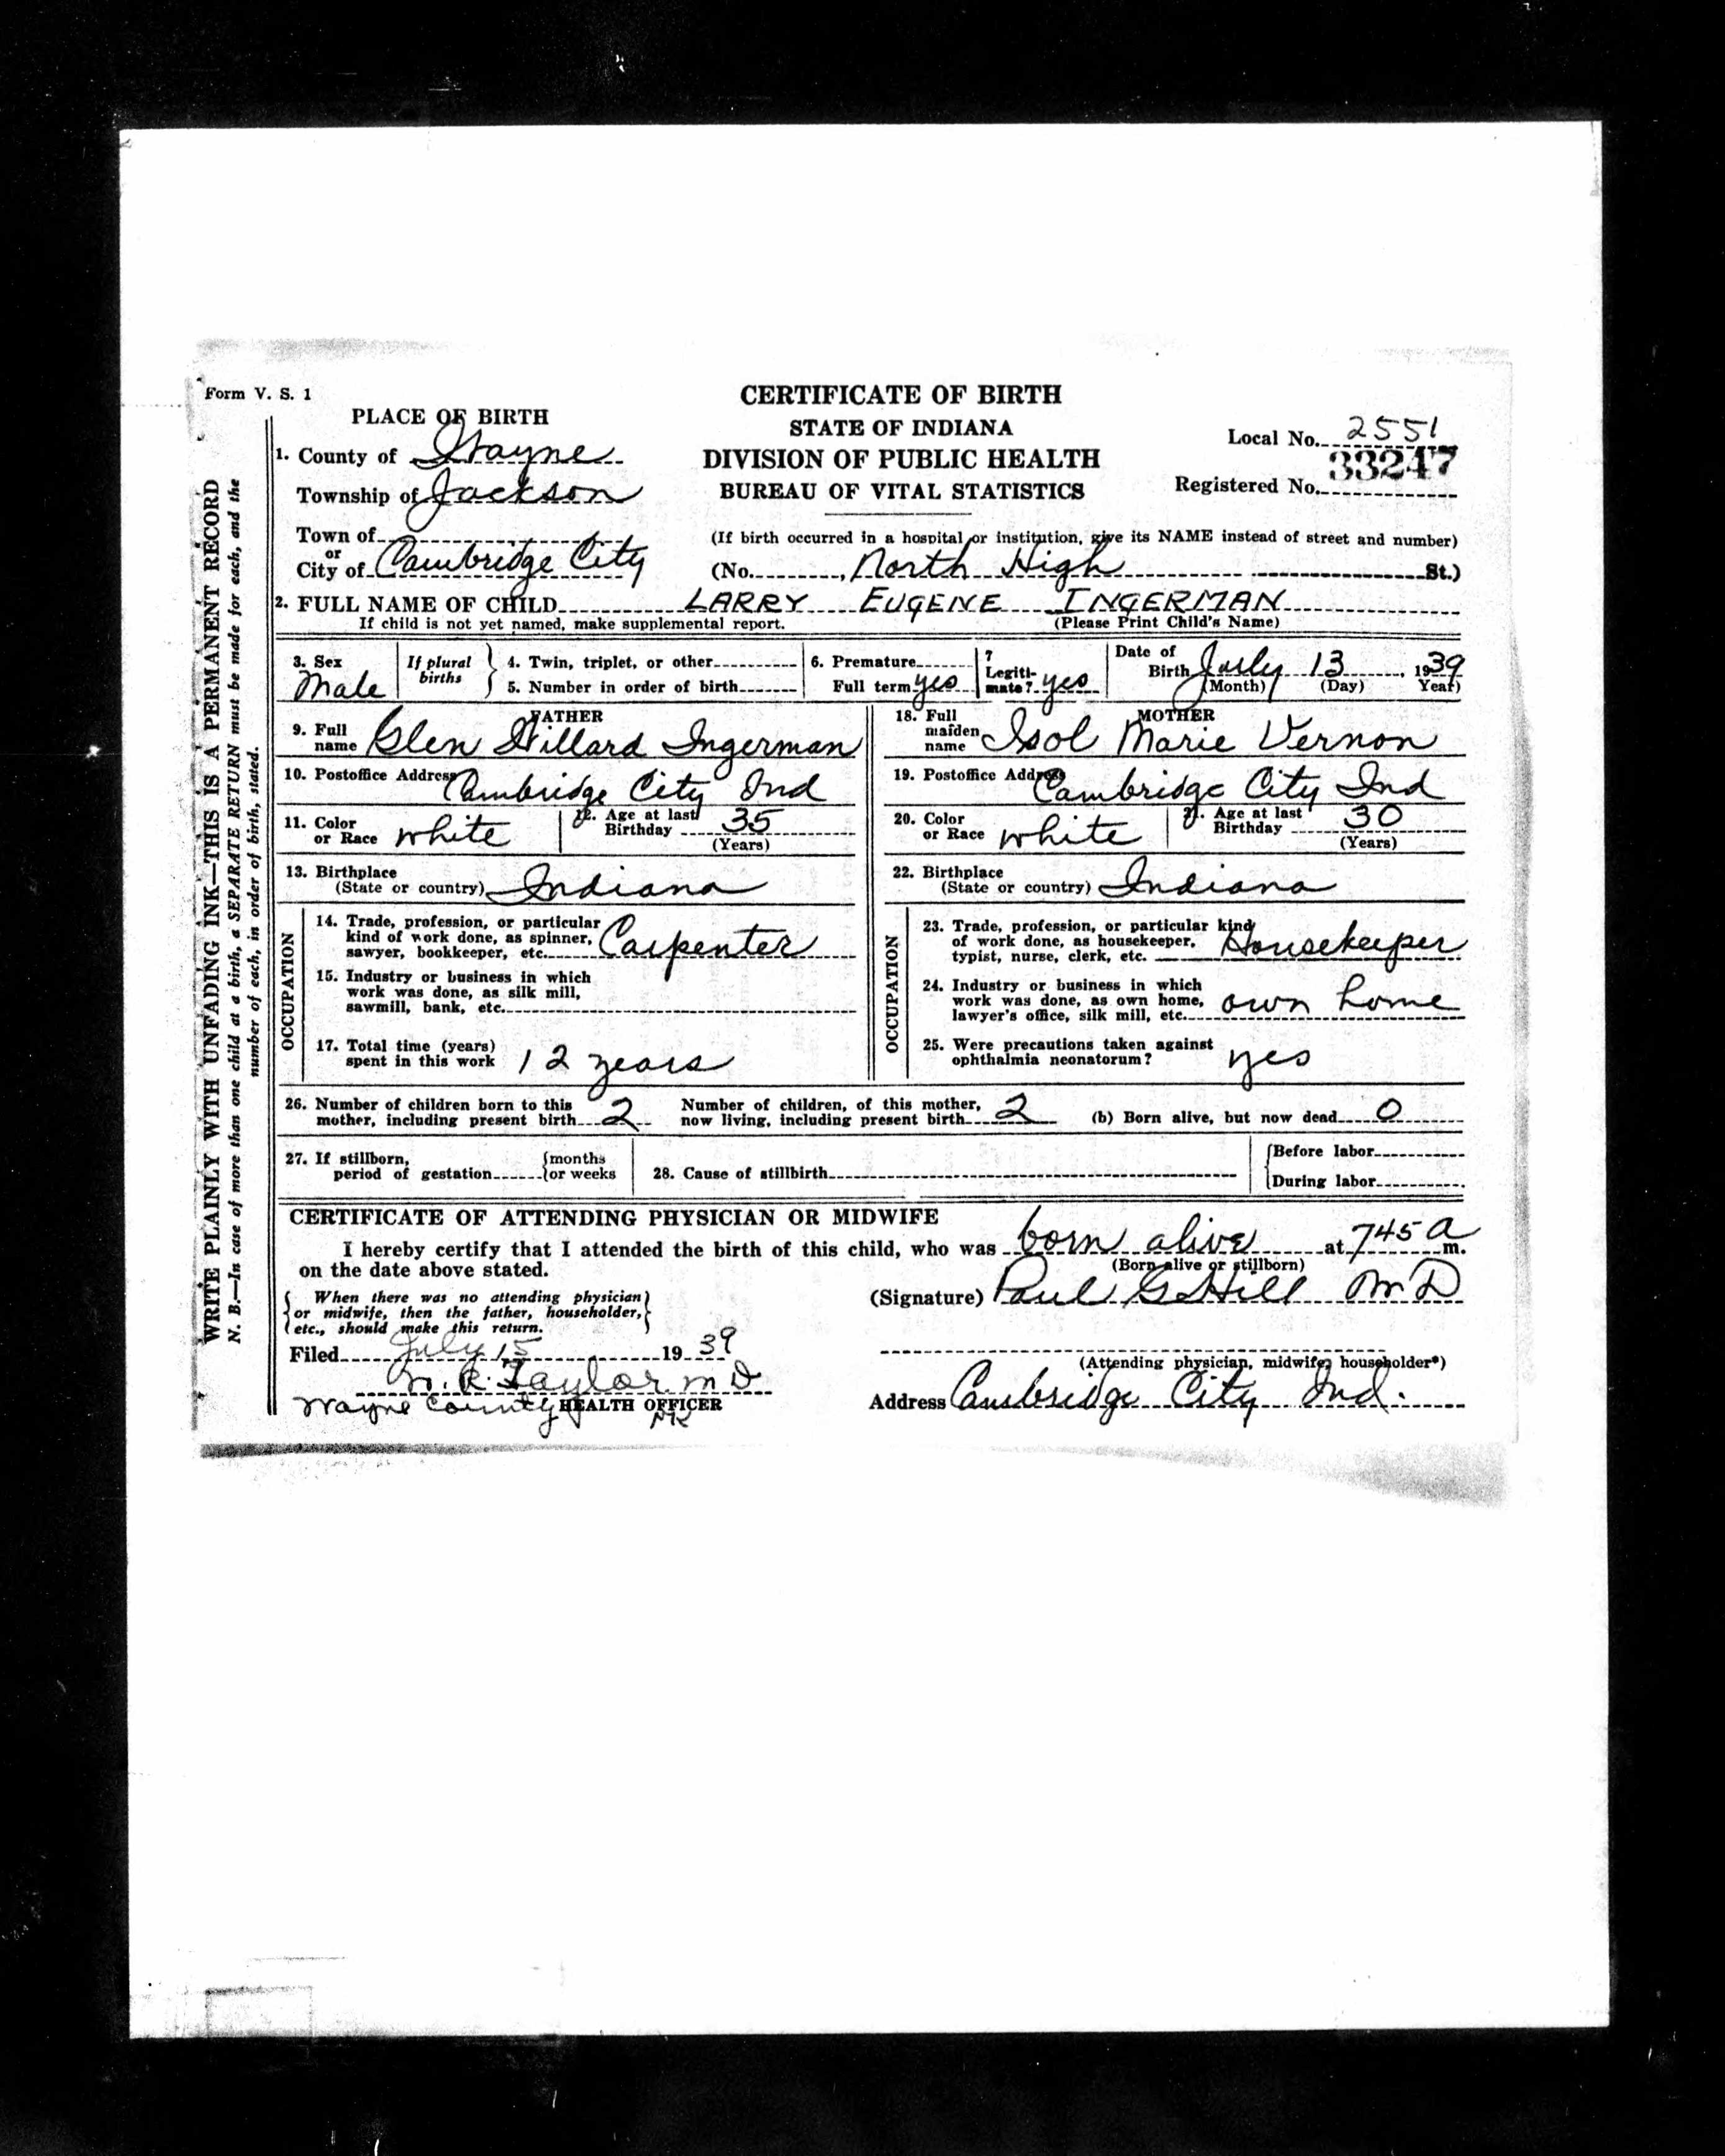 Form V. S. 1
CERTIFICATE OF BIRTH
STATE OF INDIANA
DIVISION OF PUBLIC HEALTH
BUREAU OF VITAL STATISTICS
Local No. 2551
Registered No. 33247
PLACE OF BIRTH
1. County of Wayne
Township of Jackson
Town of
or
City of Cambridge City
(If birth occurred in a hospital or institution, give its NAME instead of street and number)
(No. , North High St.)
2. FULL NAME OF CHILD LARRY EUGENE INGERMAN
If child is not yet named, make supplemental report. (Please Print Child's Name)
3. Sex Male
If plural births
4. Twin, triplet, or other
5. Number in order of birth
6. Premature
Full term yes
7 Legiti-
mate? yes
Date of
Birth July 13, 1939
(Month) (Day) Year)
FATHER
9. Full
name Glen Willard Ingerman
10. Postoffice Address Cambridge City Ind
11. Color
or Race white
12. Age at last
Birthday 35
(Years)
13. Birthplace
(State or country) Indiana
OCCUPATION
14. Trade, profession, or particular
kind of work done, as spinner,
sawyer, bookkeeper, etc. Carpenter
15. Industry or business in which
work was done, as silk mill,
sawmill, bank, etc.
17. Total time (years)
spent in this work 12 years
MOTHER
18. Full
maiden
name Isol Marie Vernon
19. Postoffice Address Cambridge City Ind
20. Color
or Race white
21. Age at last
Birthday 30
(Years)
22. Birthplace
(State or country) Indiana
OCCUPATION
23. Trade, profession, or particular kind
of work done, as housekeeper,
typist, nurse, clerk, etc. Housekeeper
24. Industry or business in which
work was done, as own home,
lawyer's office, silk mill, etc. own home
25. Were precautions taken against
ophthalmia neonatorum? yes
26. Number of children born to this
mother, including present birth 2
Number of children, of this mother,
now living, including present birth 2
(b) Born alive, but now dead 0
27. If stillborn,
period of gestation {months
{or weeks
28. Cause of stillbirth
{Before labor
{During labor
CERTIFICATE OF ATTENDING PHYSICIAN OR MIDWIFE
I hereby certify that I attended the birth of this child, who was born alive at 745 a m.
(Born alive or stillborn)
on the date above stated.
{ When there was no attending physician }
{ or midwife, then the father, householder, }
{ etc., should make this return. }
(Signature) Paul G Hill MD
(Attending physician, midwife, householder*)
Filed July 15 1939
R. Taylor MD
Wayne County HEALTH OFFICER
Address Cambridge City Ind.
WRITE PLAINLY WITH UNFADING INK—THIS IS A PERMANENT RECORD
N. B.—In case of more than one child at a birth, a SEPARATE RETURN must be made for each, and the
number of each, in order of birth, stated.